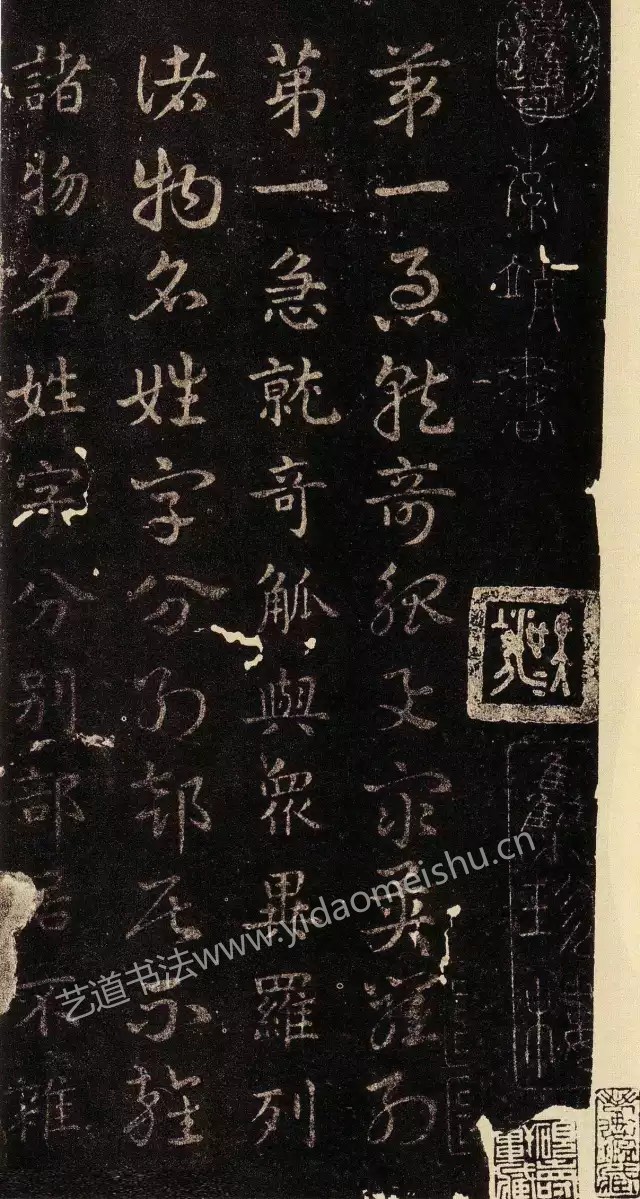 索靖書
第一急就奇觚與衆異羅列
第一急就奇觚與衆異羅列
諸物名姓字分別部居不雜
諸物名姓字分別部居不雜
艺道书法www.yidaomeishu.cn